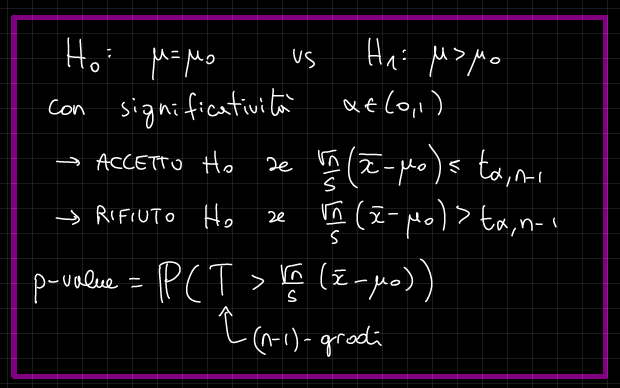 H₀: μ=μ₀ vs H₁: μ>μ₀
con significatività α∈(0,1)
→ ACCETTO H₀ se √n/S (x̄-μ₀) ≤ t α,n-1
→ RIFIUTO H₀ se √n/S (x̄-μ₀) > t α,n-1
p-value = ℙ(T > √n/S (x̄-μ₀))
(n-1)-gradi